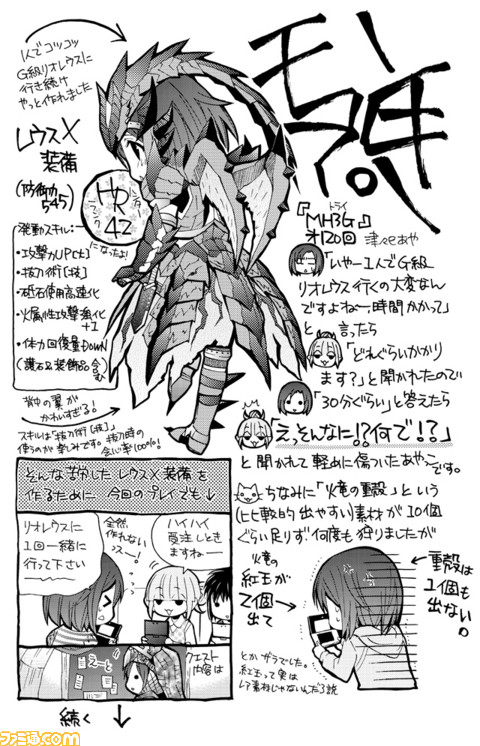 モ!!手
『MH3G』
トライ
オ120回 津々巳あや
「いやー1人でG級
リオレウス行くの大変なん
ですよね〜、時間かかって」
と 言ったら
「どれぐらいかかり
ます?」と聞かれたので
「30分ぐらい」と答えたら
「えっそんなに!?何で!?」
と聞かれて軽めに傷ついたあやっこです。
ちなみに「火竜の重殻」という
(比較的出やすい)素材が10個
ぐらい足りず何度も狩りましたが
火竜の
紅玉が
2個出て
重殻は
1個も
出ない。
とかザラでした。
紅玉って実は
レア素材じゃないんだろ説
1人でコツコツ
G級リオレウスに
行き続け
やっと作れました
レウスX
装備
(防御力
545)
ハンターランク
HR
42
になったよ!
発動スキル:
・攻撃力UP[大]
・抜刀術[技]
・砥石使用高速化
・火属性攻撃強化
+1
・体力回復量DOWN
(護石&装飾品含む)
背中の翼が
かわいすぎる!
スキルは「抜刀術[技]」
使うのが楽しみです。抜刀時の
会心率100%!
そんな苦労したレウスX装備を
作るために 今回のプレイでも↓
リオレウスに
1回一緒に
行って下さい
全然
作れない
っスー!
ハイハイ
受注しとき
ますねー
えーと
クエスト
内容は
続く
ファミ通.com